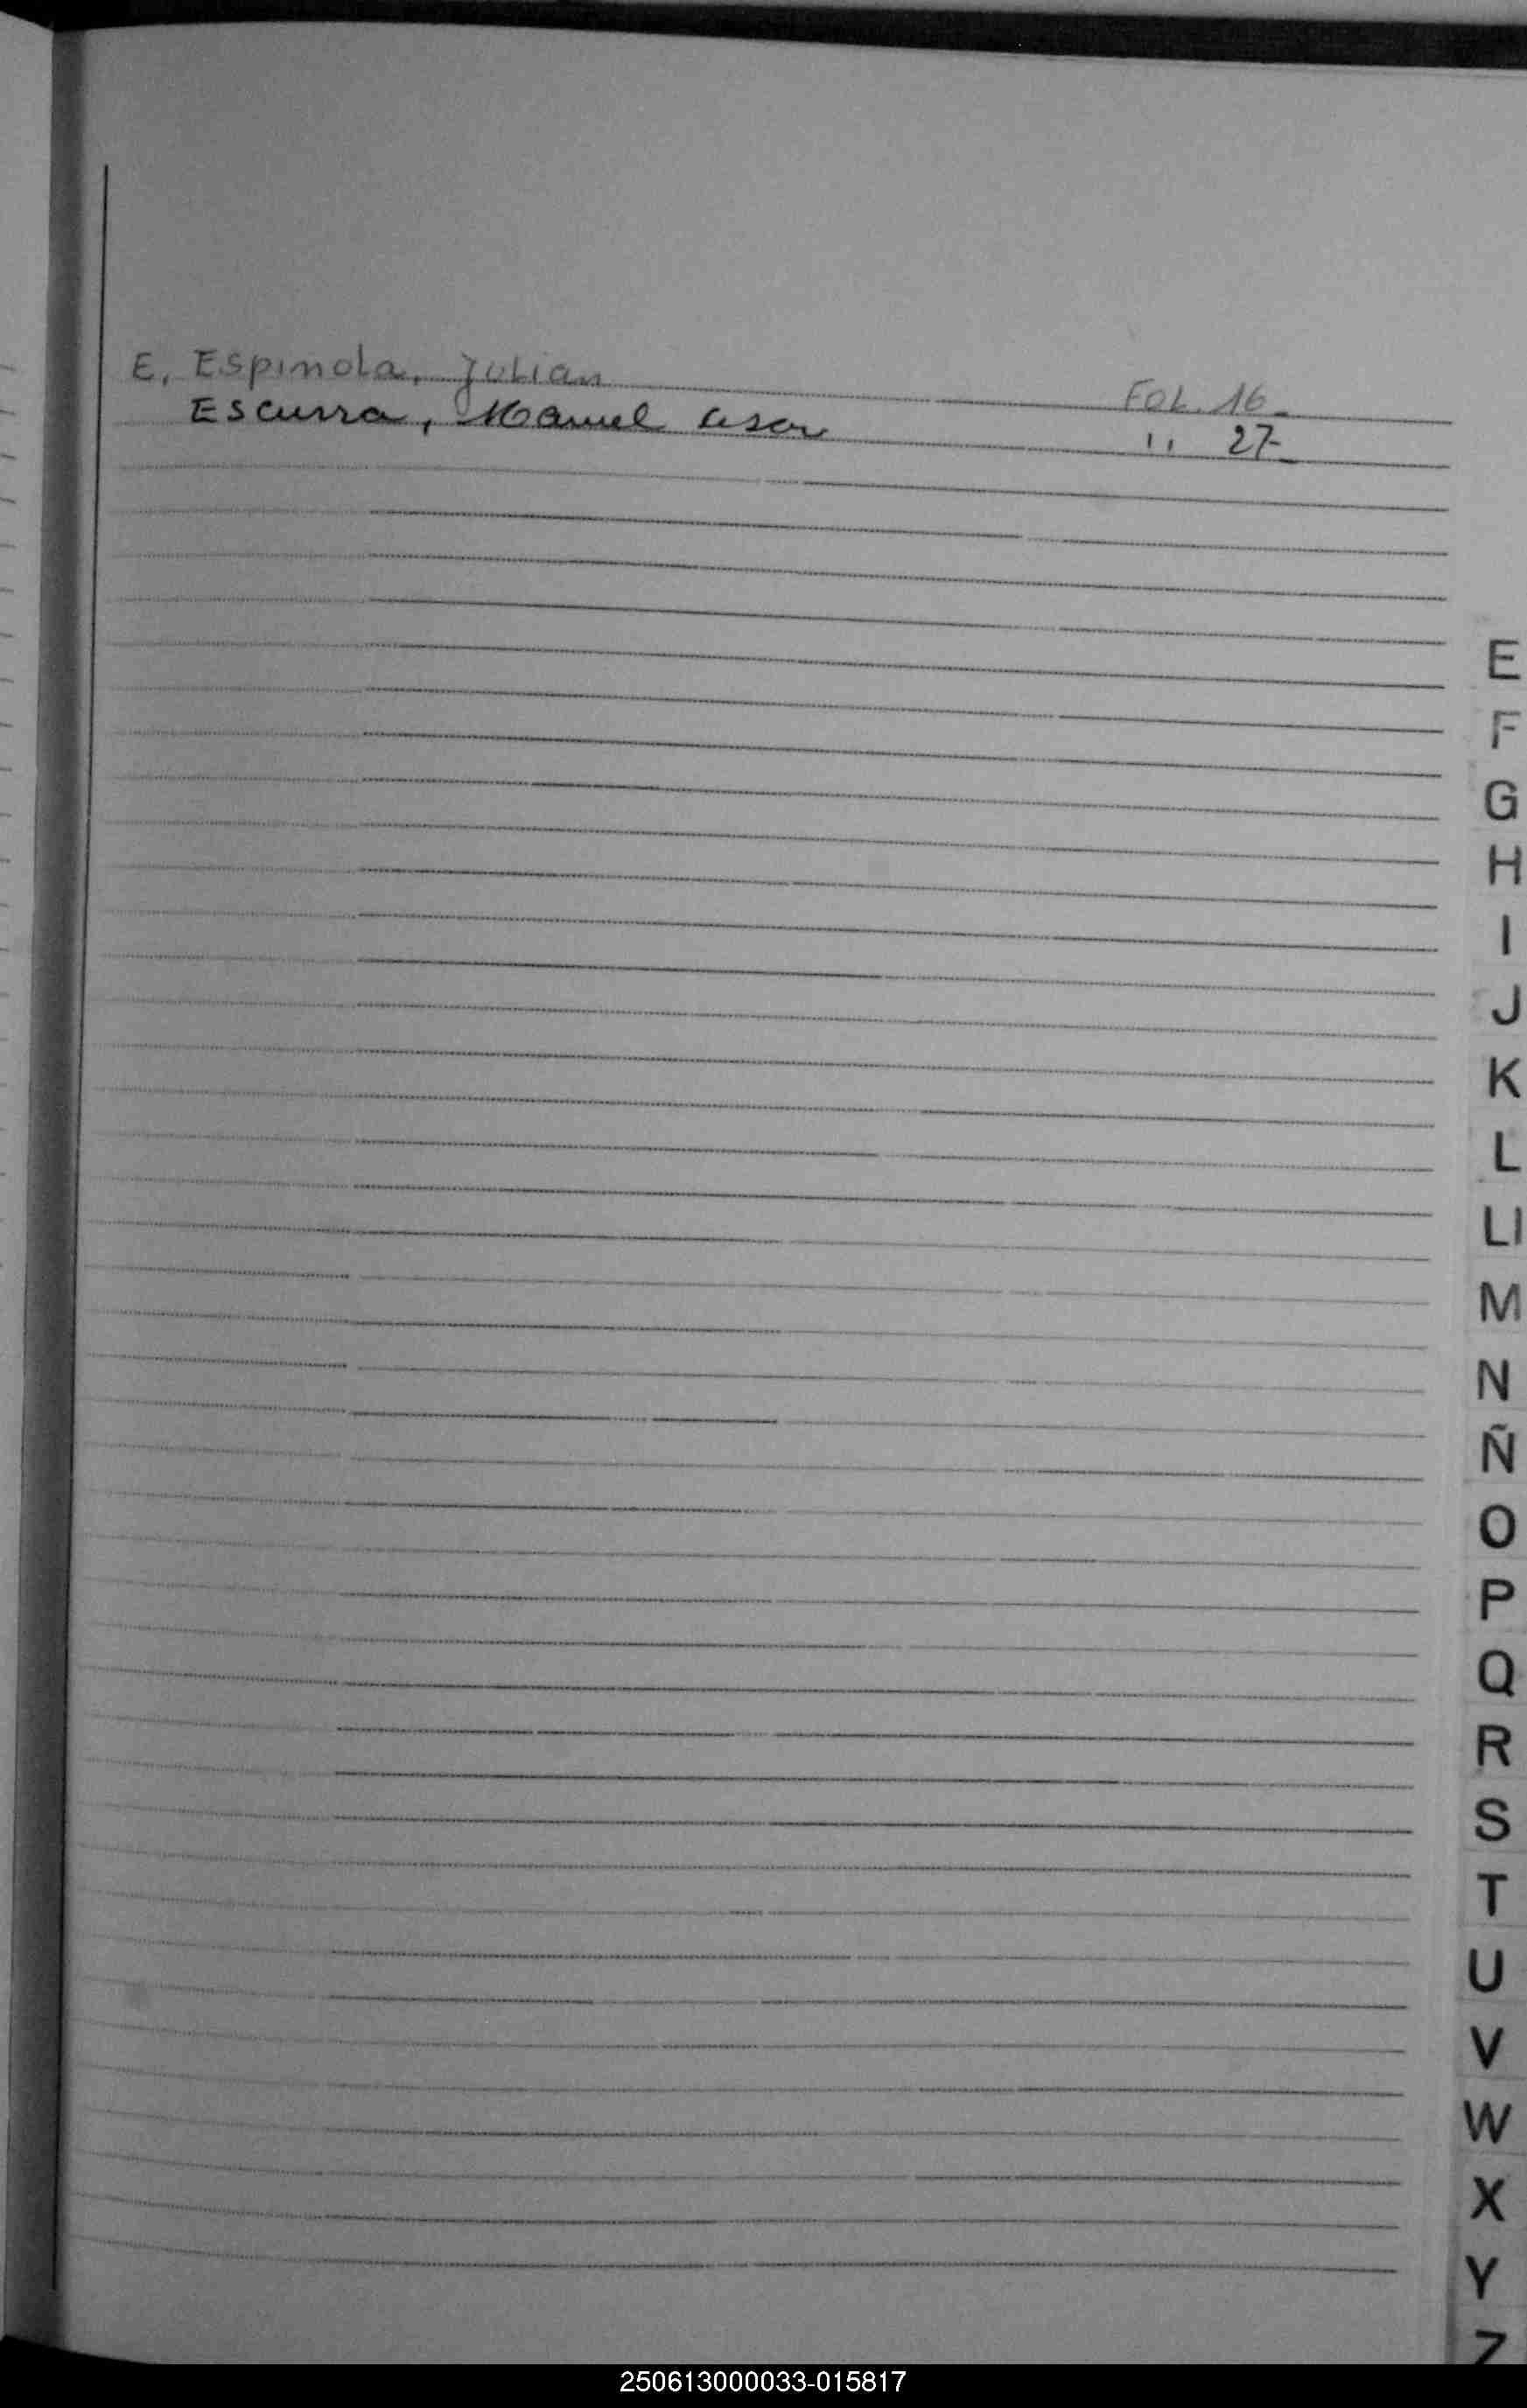 E, Espinola, Julian FOL. 16-
Escurra, Manuel Cesar " 27-
E
F
G
H
I
J
K
L
Ll
M
N
Ñ
O
P
Q
R
S
T
U
V
W
X
Y
Z
250613000033-015817